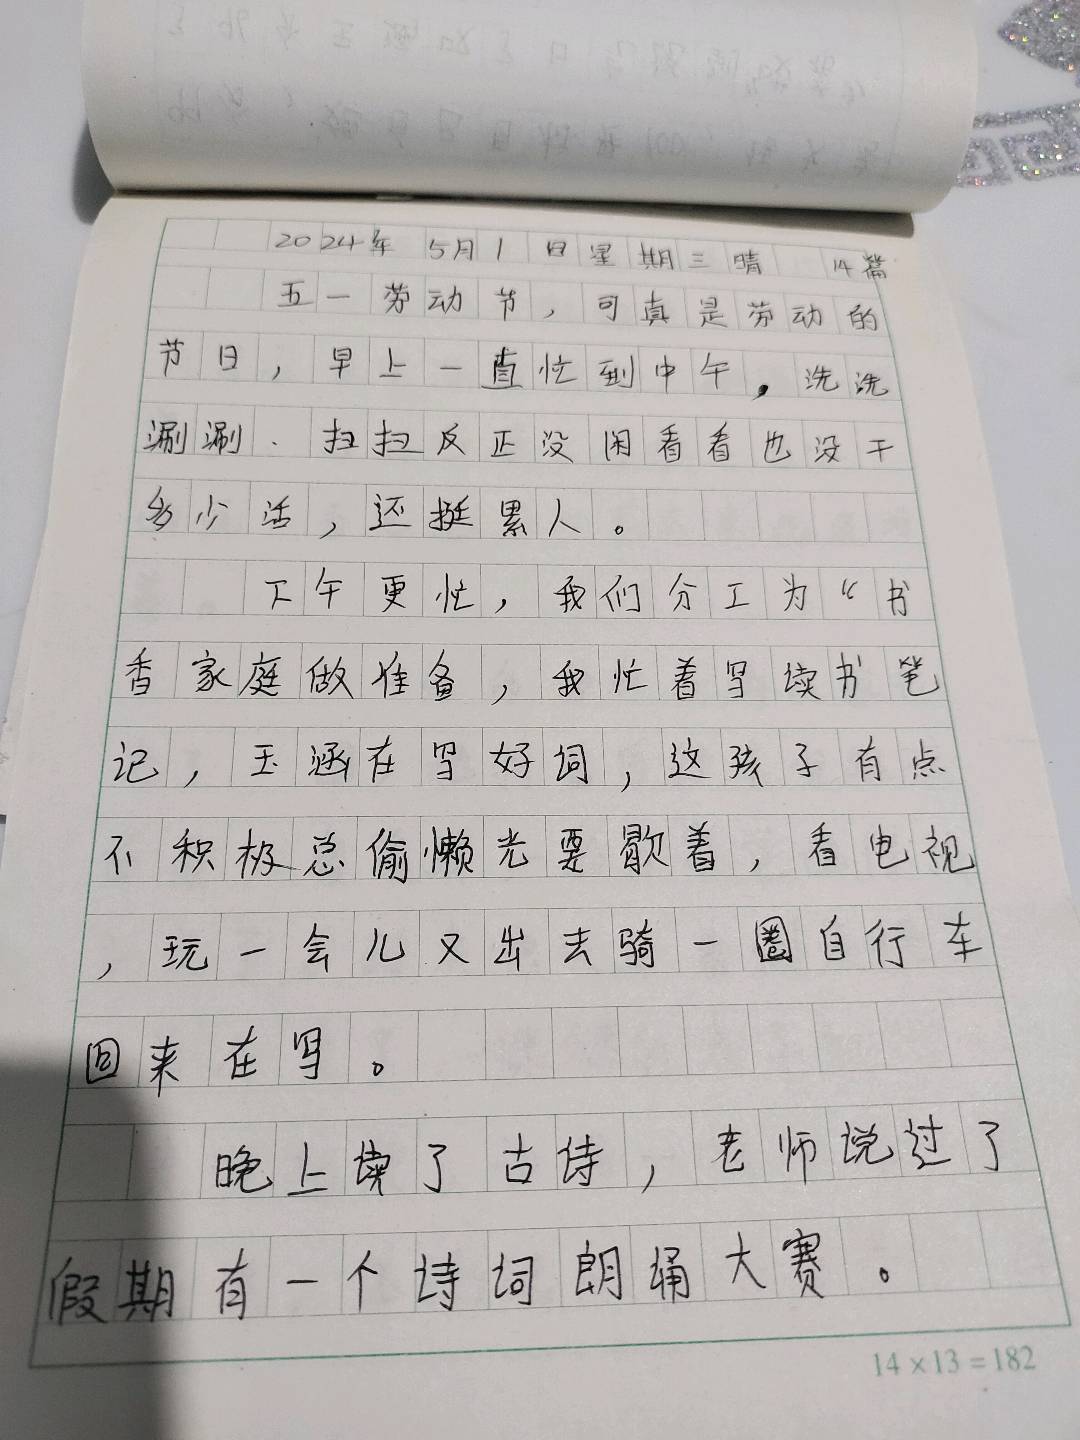 2024年 5月1日星期三晴 14篇
五一劳动节，可真是劳动的
节日，早上一直忙到中午，洗洗
涮涮、扫扫反正没闲看看也没干
多少活，还挺累人。
下午更忙，我们分工为“书
香家庭做准备，我忙着写读书笔
记，玉涵在写好词，这孩子有点
不积极总偷懒光要歇着，看电视
，玩一会儿又出去骑一圈自行车
回来在写。
晚上读了古诗，老师说过了
假期有一个诗词朗诵大赛。
14×13=182